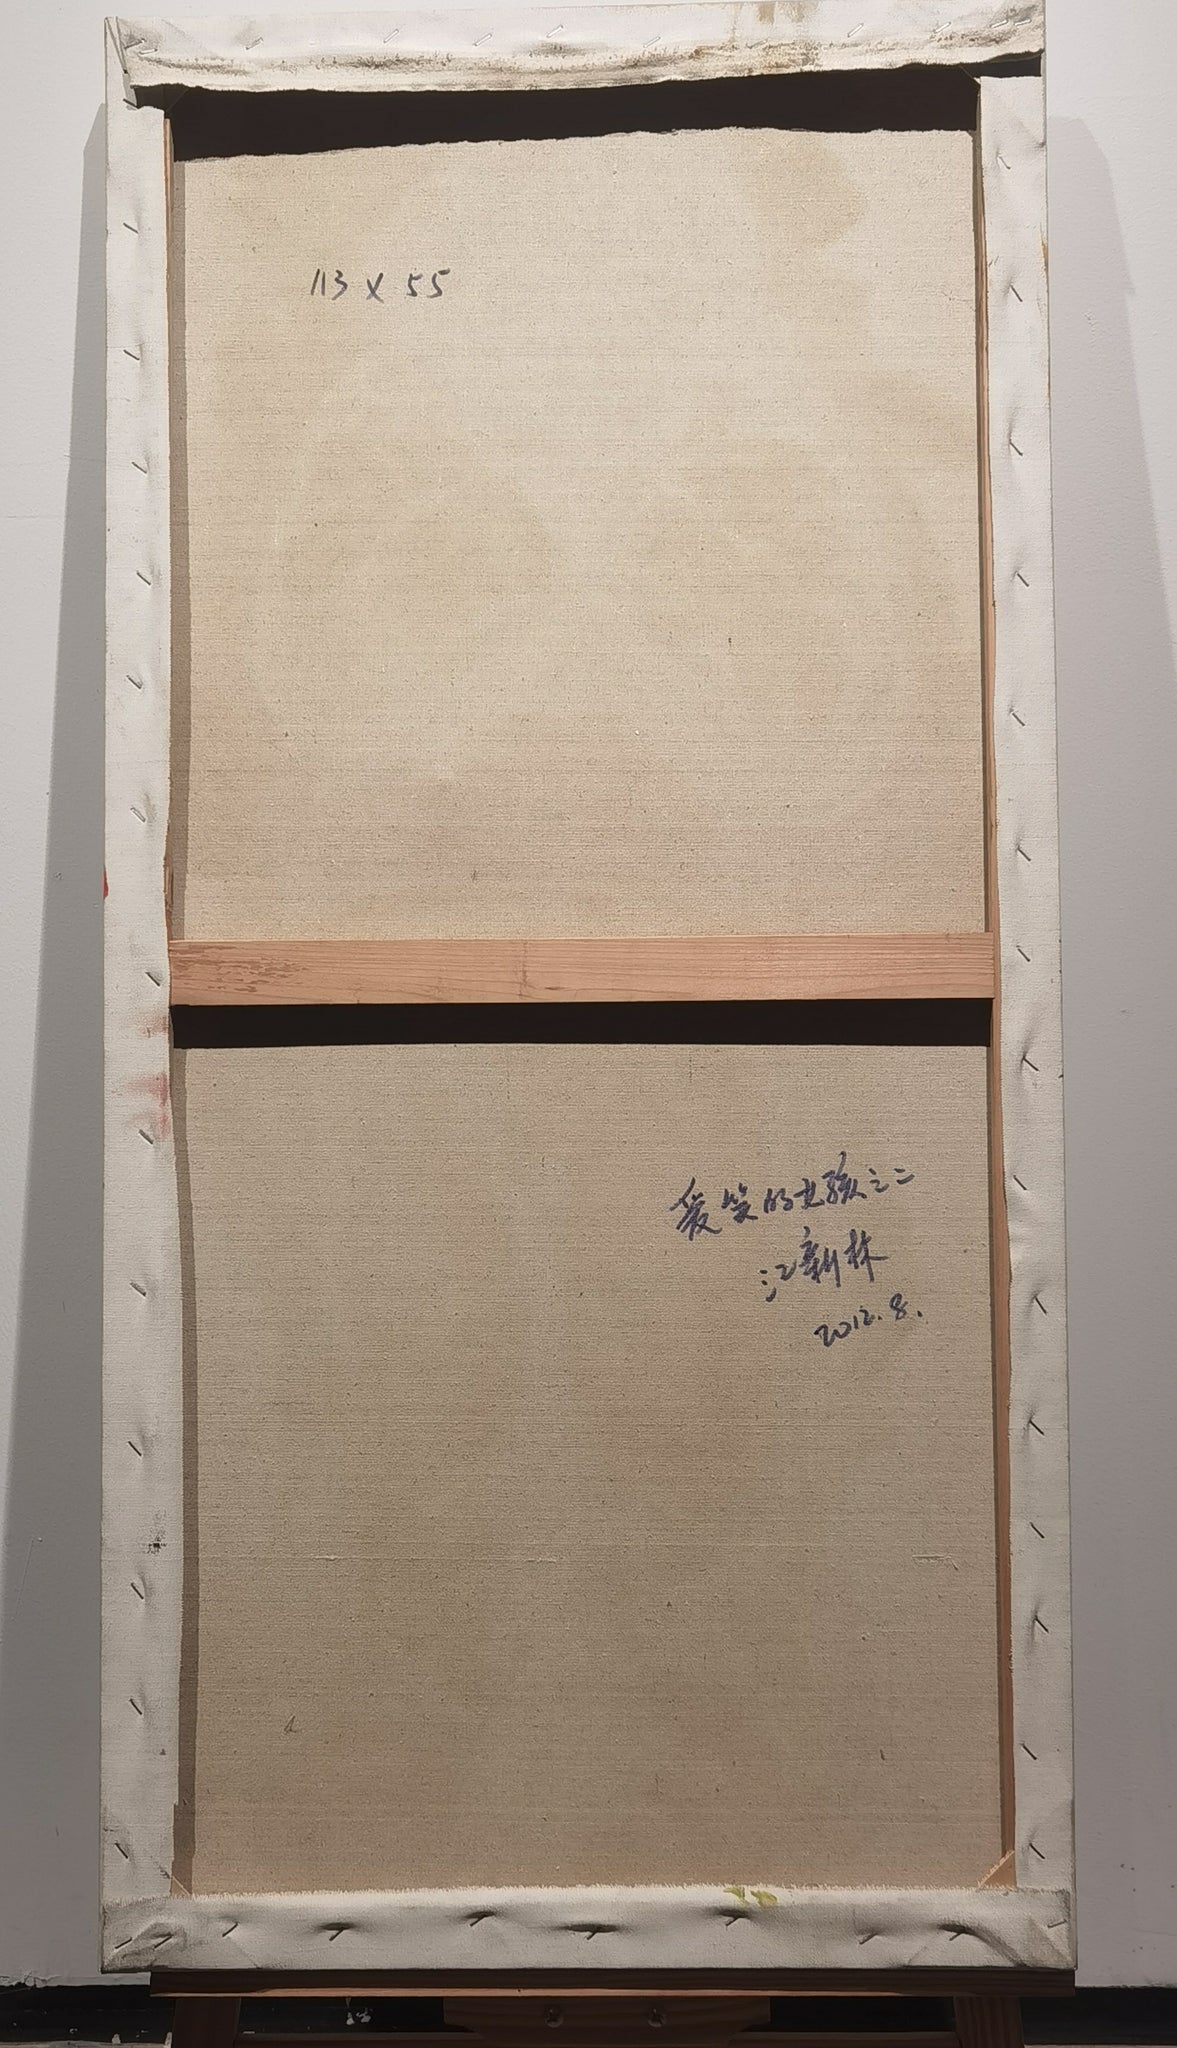 113 x 55
爱笑的女孩之二
江新林
2012.8.